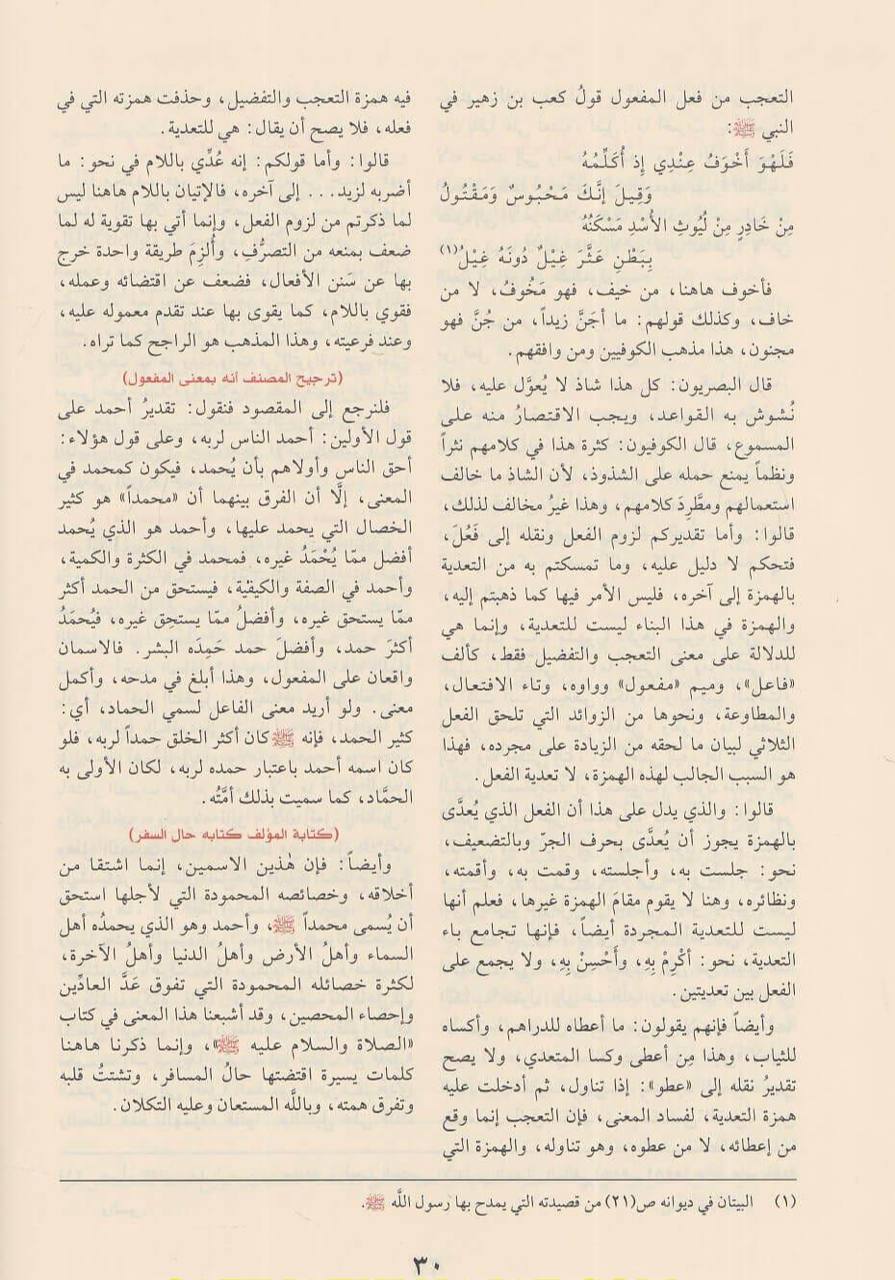 التعجب من فعل المفعول قولُ كعب بن زهير في
النبي ﷺ:
فَلَهْوَ أَخْوَفُ عِنْدِي إِذ أُكَلِّمُهُ
وَقِيلَ إِنَّكَ مَحْبُوسٌ وَمَقْتُولُ
مِنْ خَادِرٍ مِنْ لُيُوثِ الأُسْدِ مَسْكَنُهُ
بِبَطْنِ عَثَّرَ غِيْلٌ دُونَهُ غِيْلُ(١)
فأخوف هاهنا، من خيف، فهو مَخُوفُ، لا من
خاف، وكذلك قولهم: ما أجَنَّ زيداً، من جُنَّ فهو
مجنون، هذا مذهب الكوفيين ومن وافقهم.
قال البصريون: كل هذا شاذ لا يُعوَّل عليه، فلا
نُشوش به القواعد، ويجب الاقتصارُ منه على
المسموع، قال الكوفيون: كثرة هذا في كلامهم نثراً
ونظماً يمنع حمله على الشذوذ، لأن الشاذ ما خالف
استعمالهم ومطَّرِدَ كلامهم، وهذا غيرُ مخالف لذلك،
قالوا: وأما تقديركم لزوم الفعل ونقله إلى فَعُلَ،
فتحكم لا دليل عليه، وما تمسكتم به من التعدية
بالهمزة إلى آخره، فليس الأمر فيها كما ذهبتم إليه،
والهمزة في هذا البناء ليست للتعدية، وإنما هي
للدلالة على معنى التعجب والتفضيل فقط، كألف
«فاعل»، وميم «مفعول» وواوه، وتاء الافتعال،
والمطاوعة، ونحوها من الزوائد التي تلحق الفعل
الثلاثي لبيان ما لحقه من الزيادة على مجرده، فهذا
هو السبب الجالب لهذه الهمزة، لا تعدية الفعل.
قالوا: والذي يدل على هذا أن الفعل الذي يُعدَّى
بالهمزة يجوز أن يُعدَّى بحرف الجرّ وبالتضعيف،
نحو: جلست به، وأجلسته، وقمت به، وأقمته،
ونظائره، وهنا لا يقوم مقامَ الهمزة غيرها، فعلم أنها
ليست للتعدية المجردة أيضاً، فإنها تجامع باء
التعدية، نحو: أكْرِمْ بِهِ، وأَحْسِنْ بِهِ، ولا يجمع على
الفعل بين تعديتين.
وأيضاً فإنهم يقولون: ما أعطاه للدراهم، وأكساه
للثياب، وهذا مِن أعطى وكسا المتعدي، ولا يصح
تقديرُ نقله إلى «عطو»: إذا تناول، ثم أدخلت عليه
همزة التعدية، لفساد المعنى، فإن التعجب إنما وقع
من إعطائه، لا من عطوه، وهو تناوله، والهمزة التي
فيه همزة التعجب والتفضيل، وحذفت همزته التي في
فعله، فلا يصح أن يقال: هي للتعدية.
قالوا: وأما قولكم: إنه عُدِّي باللام في نحو: ما
أضربه لزيد... إلى آخره، فالإتيان باللام هاهنا ليس
لما ذكرتم من لزوم الفعل، وإنما أتي بها تقوية له لما
ضعف بمنعه من التصرُّفِ، وأُلزِمَ طريقة واحدة خرج
بها عن سَنن الأفعال، فضعف عن اقتضائه وعمله،
فقوي باللام، كما يقوى بها عند تقدم معموله عليه،
وعند فرعيته، وهذا المذهب هو الراجح كما تراه.
(ترجيح المصنف أنه بمعنى المفعول)
فلنرجع إلى المقصود فنقول: تقديرُ أحمد على
قول الأولين: أحمد الناس لربه، وعلى قول هؤلاء:
أحق الناس وأولاهم بأن يُحمد، فيكون كمحمد في
المعنى، إلَّا أن الفرق بينهما أن «محمداً» هو كثير
الخصال التي يحمد عليها، وأحمد هو الذي يُحمد
أفضل ممّا يُحْمَدُ غيره، فمحمد في الكثرة والكمية،
وأحمد في الصفة والكيفية، فيستحق من الحمد أكثر
ممّا يستحق غيره، وأفضلُ ممّا يستحِق غيره، فيُحمَدُ
أكثرَ حمد، وأفضلَ حمد حَمِدَه البشر. فالاسمان
واقعان على المفعول، وهذا أبلغ في مدحه، وأكمل
معنى. ولو أريد معنى الفاعل لسمي الحماد، أي:
كثير الحمد، فإنه ﷺ كان أكثر الخلق حمداً لربه، فلو
كان اسمه أحمد باعتبار حمده لربه، لكان الأولى به
الحمَّاد، كما سميت بذلك أمَّتُه.
(كتابة المؤلف كتابه حال السفر)
وأيضاً: فإن هٰذين الاسمين، إنما اشتقا من
أخلاقه، وخصائصه المحمودة التي لأجلها استحق
أن يُسمى محمداً ﷺ، وأحمد وهو الذي يحمدُه أهل
السماء وأهلُ الأرض وأهلُ الدنيا وأهلُ الآخرة،
لكثرة خصائله المحمودة التي تفوق عَدَّ العادِّين
وإحصاء المحصين، وقد أشبعنا هذا المعنى في كتاب
«الصلاة والسلام عليه ﷺ»، وإنما ذكرنا هاهنا
كلمات يسيرة اقتضتها حالُ المسافر، وتشتتُ قلبه
وتفرق همته، وباللَّه المستعان وعليه التكلان.
(١) البيتان في ديوانه ص(٢١) من قصيدته التي يمدح بها رسول اللَّه ﷺ.
٣٠